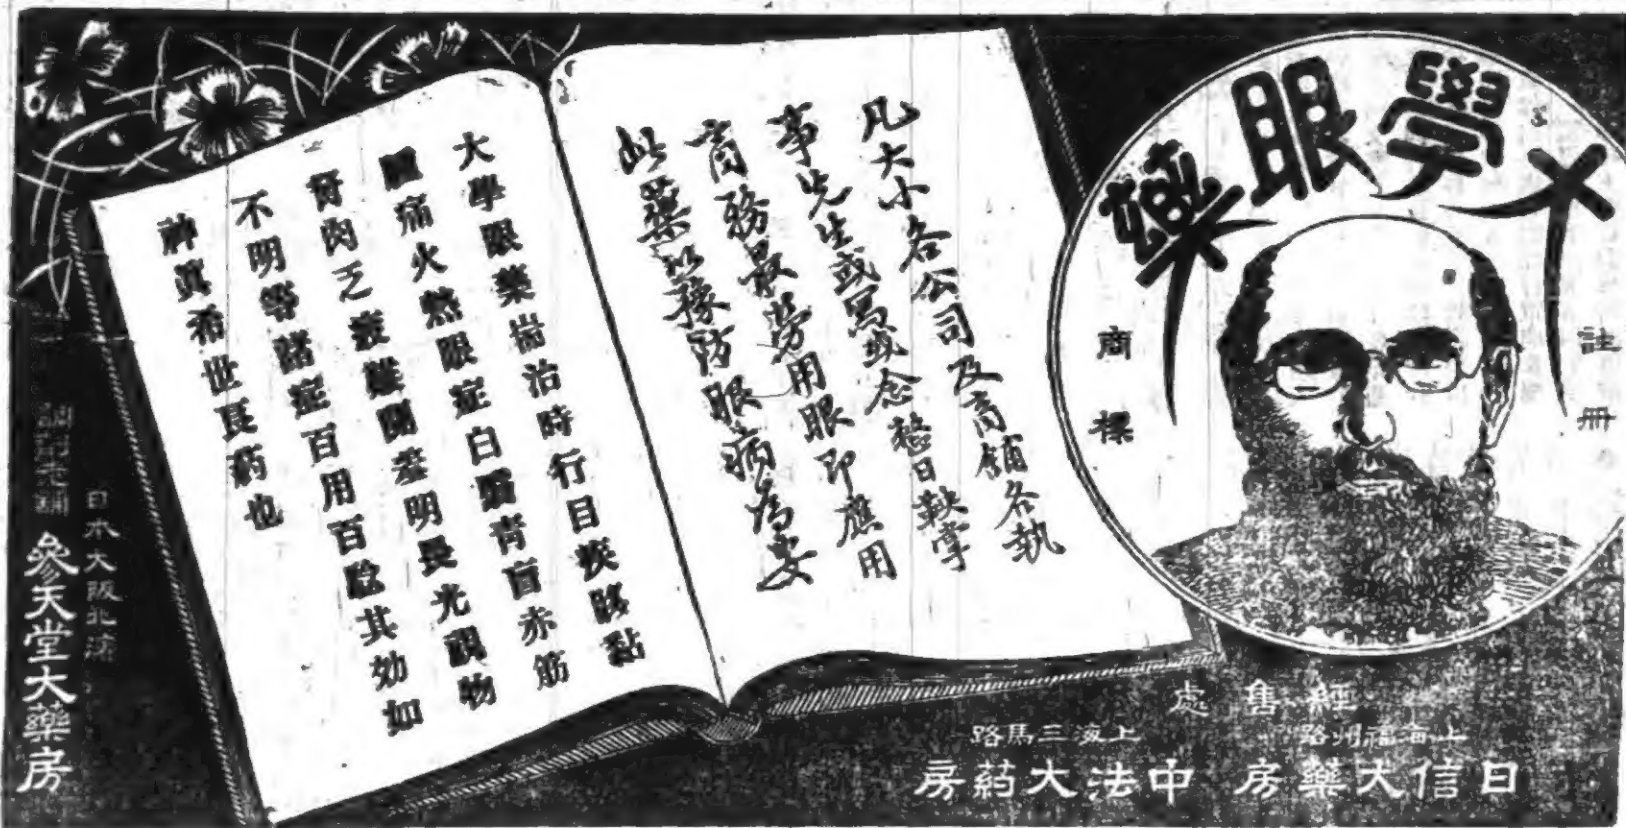 大學眼藥
註冊
商標
凡大小各公司及商舖各執
事先生或寫或念整日鞅掌
商務最勞用眼即應用
此藥以豫防眼病為妥
大學眼藥耑治時行目疾眵黏
腫痛火熱眼症白翳青盲赤筋
努肉乏衰難開羞明畏光視物
不明等諸症百用百驗其効如
神眞希世良葯也
經售處
上海福州路
日信大藥房
上海三馬路
中法大葯房
日本大阪北濱
調製老舖
參天堂大藥房